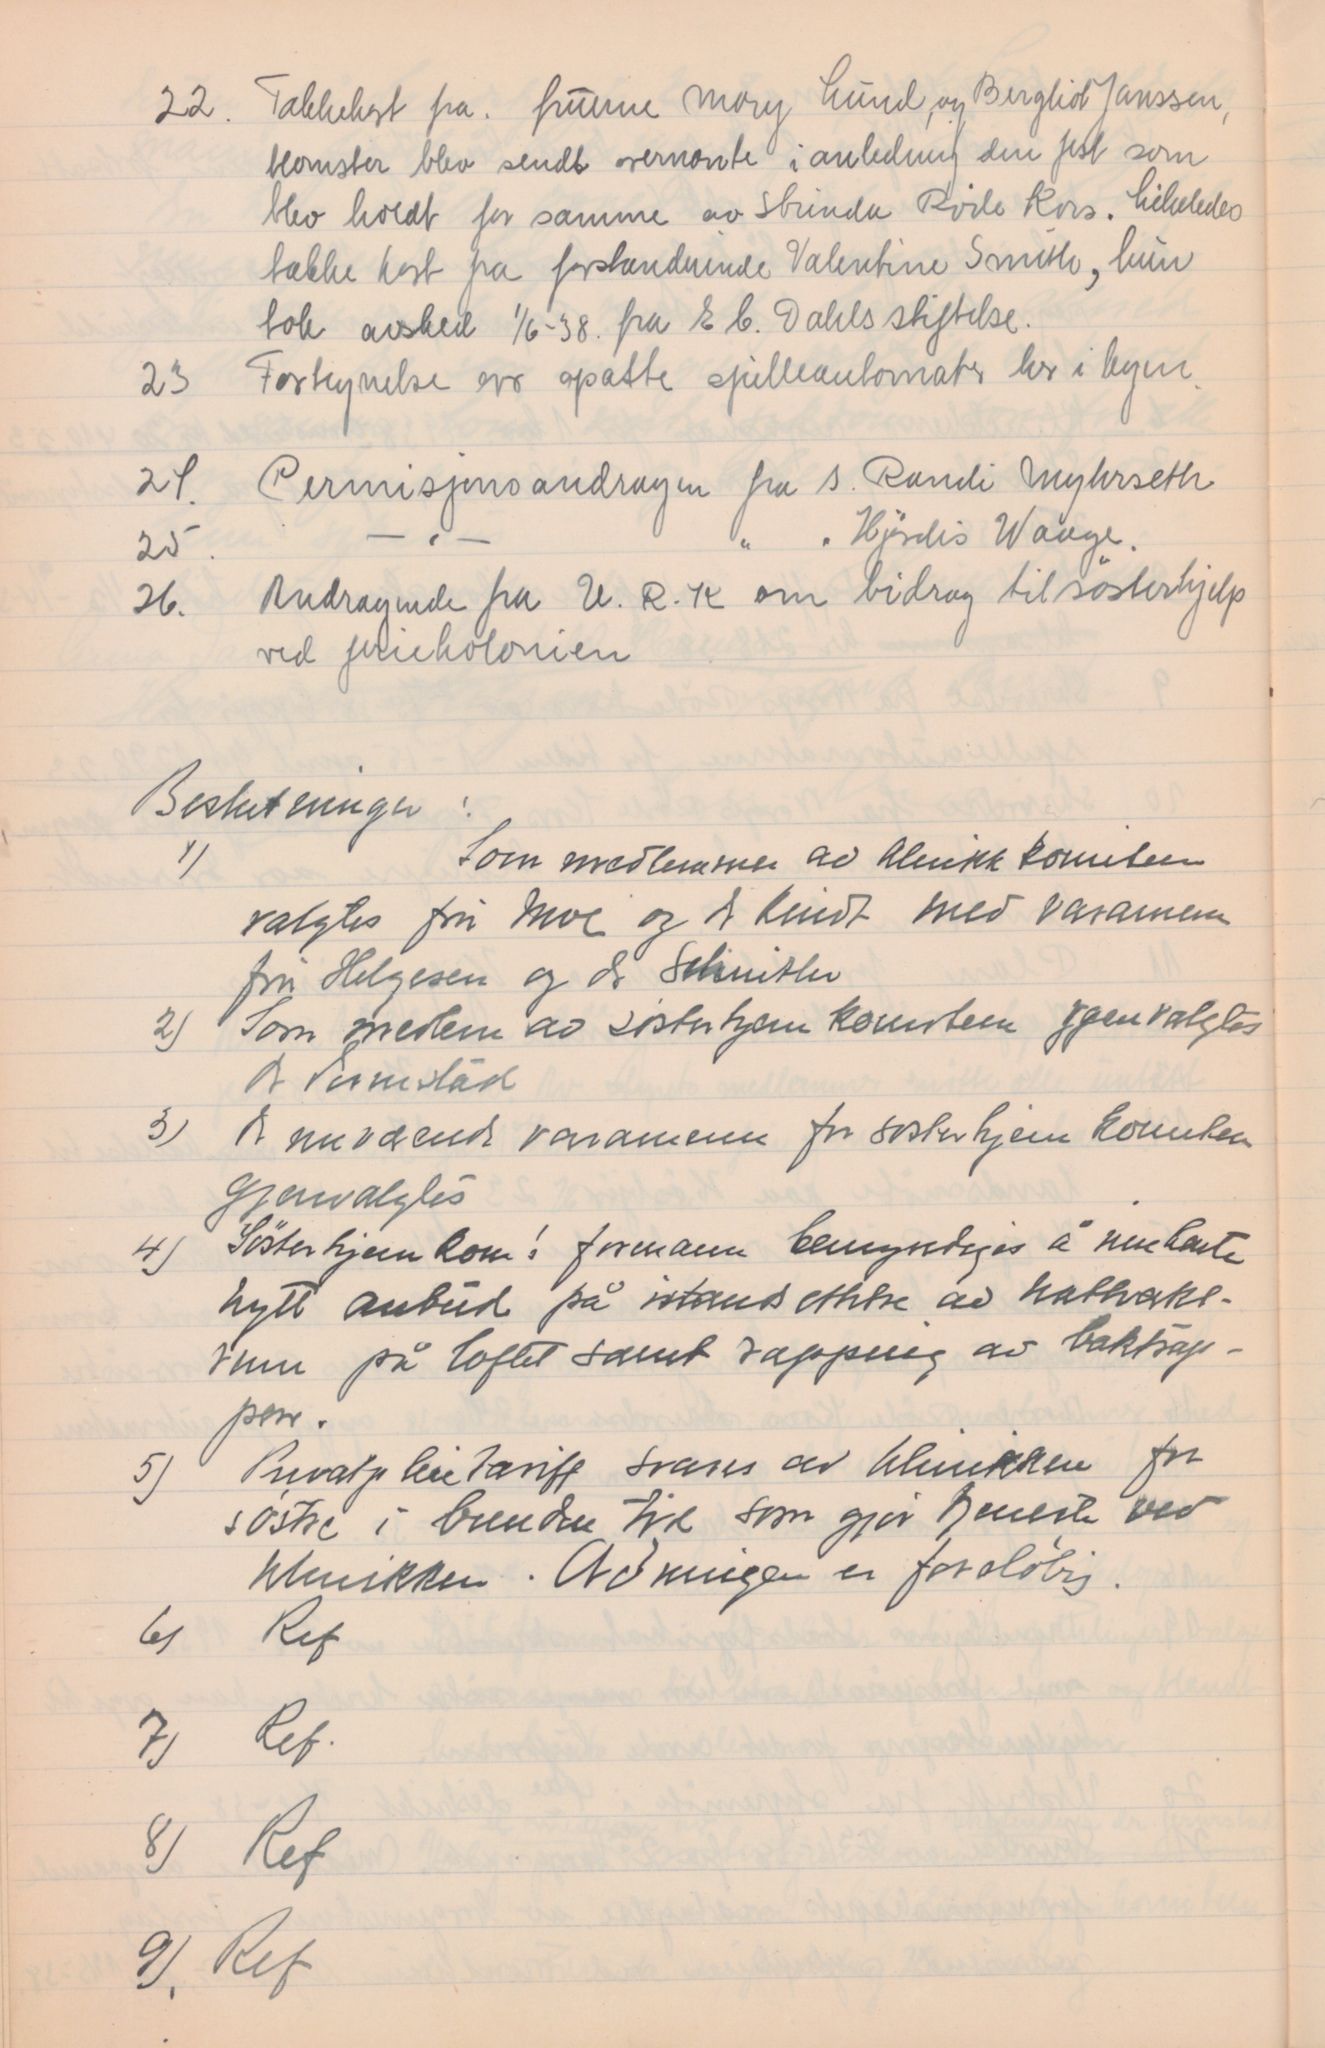 22. Takkekort fra. fruerne Mary Lund, og Bergliot Janssen,
blomster blev sendt overnevnte i anledning den fest som
blev holdt for samme av Strinda Røde Kors. Likeledes
takke kort fra forstanderinde Valentine Smith, hun
tok avsked 1/6-38. fra E C. Dahls stiftelse.
23 Forkynelse ovr opsatte spilleautomater her i byen.
24. Permisjonsandragen fra S. Randi Myhrseth
25. — " — " " Hjørdis Waage.
26. Andragende fra U. R. K om bidrag til søsterhjelp
ved feriekolonien
Beslutninger :
1) Som medlemmer av klinikk komiteen
valgtes fru Moe og dr Kindt med varamenn
fru Helgesen og dr Schnitler
2) Som medlem av søsterhjem komiteen gjenvalgtes
dr
3) De nuværende varamenn for søsterhjem komiteen
gjenvalgtes
4) Søsterhjem kom: formann bemyndiges å innhente
nytt anbud på istandsettelse av nattvakt-
rum på loftet samt rapping av baktrap-
pene.
5) Privatpleietariff svares av klinikken for
søstre i bunden tid som gjør tjeneste ved
klinikken. Ordningen er foreløbig.
6) Ref
7) Ref.
8) Ref
9). Ref